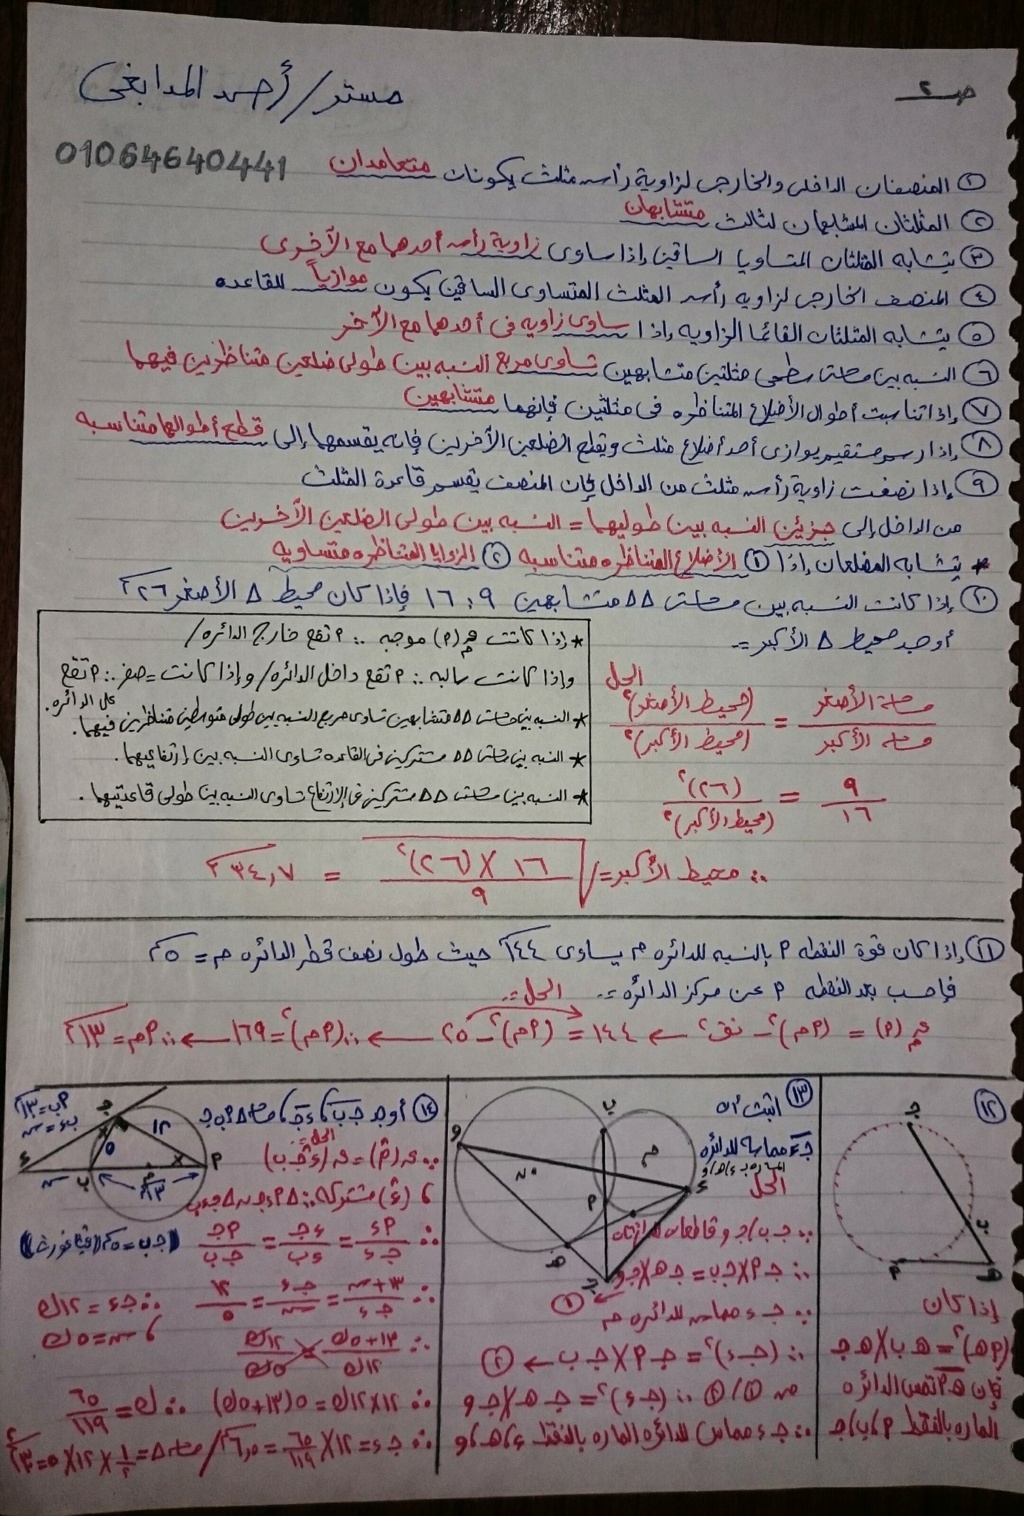 ص٢
مستر / أحمد المدابغى
01064640441
① المنصفان الداخلى والخارجى لزاوية رأس مثلث يكونان متعامدان
② المثلثان المشابهان لثالث متشابهان
③ يتشابه المثلثان المتساويا الساقين إذا ساوى زاوية رأس أحدهما مع الآخرى
④ المنصف الخارجى لزاويه رأس المثلث المتساوى الساقين يكون موازياً للقاعده
⑤ يتشابه المثلثان القائما الزاويه إذا ساوى زاويه فى أحدهما مع الآخر
⑥ النسبه بين مساحتى سطحى مثلثين متشابهين تساوى مربع النسبه بين طولى ضلعين متناظرين فيهما
⑦ إذا تناسبت أطوال الأضلاع المتناظره فى مثلثين فإنهما متشابهين
⑧ إذا رسم مستقيم يوازى أحد أضلاع مثلث ويقطع الضلعين الآخرين فإنه يقسمهما إلى قطع أطوالها متناسبه
⑨ إذا نصفت زاوية رأس مثلث من الداخل فإن المنصف يقسم قاعدة المثلث
من الداخل إلى جزئين النسبه بين طوليهما = النسبه بين طولى الضلعين الآخرين
* يتشابه المضلعان إذا ① الأضلاع المتناظره متناسبه ② الزوايا المتناظره متساويه
⑩ إذا كانت النسبه بين مساحتى ΔΔ متشابهين ٩ : ١٦ فإذا كان محيط Δ الأصغر ٢٦سم
أوجد محيط Δ الأكبر
* إذا كانت ق(٢) موجبه ∴ ٢ تقع خارج الدائره /
وإذا كانت سالبه ∴ ٢ تقع داخل الدائره / وإذا كانت = صفر ∴ ٢ تقع
على الدائره.
* النسبه بين مساحتى ΔΔ متشابهين تساوى مربع النسبه بين طولى متوسطين متناظرين فيهما.
* النسبه بين مساحتى ΔΔ مشتركين فى القاعده تساوى النسبه بين إرتفاعيهما.
* النسبه بين مساحتى ΔΔ مشتركين فى الإرتفاع تساوى النسبه بين طولى قاعدتيهما.
الحل
مساحة الأصغر / مساحة الأكبر = (محيط الأصغر)٢ / (محيط الأكبر)٢
٩ / ١٦ = (٢٦)٢ / (محيط الأكبر)٢
∴ محيط الأكبر = √(١٦ × (٢٦)٢ / ٩) = ٣٤,٧ سم
⑪ إذا كان قوة النقطه ٢ بالنسبه للدائره م يساوى ١٤٤ حيث طول نصف قطر الدائره م = ٥سم
فاحسب بعد النقطه ٢ عن مركز الدائره
الحل
ق(٢) = (٢م)٢ - نق٢ ← ١٤٤ = (٢م)٢ - ٢٥ ← ∴(٢م)٢ = ١٦٩ ← ∴ ٢م = ١٣سم
⑫
ج
ب
٢
ه
إذا كان
(٢ه)٢ = ه ب × ه ج
فإن ه٢ تمس الدائره
الماره بالنقط ٢، ب، ج
⑬ اثبت أن
جـء مماسه للدائره
الماره بـ ء، ه، و
الحل
∵ جـ ب، جـ و قاطعان للدائره ن
∴ جـ٢ × جـب = جـه × جـو ← ①
∵ جـء مماسه للدائره م
∴ (جـء)٢ = جـ٢ × جـب ← ②
من ①، ② ∴ (جـء)٢ = جـه × جـو
∴ جـء مماس للدائره الماره بالنقط ء، ه، و
⑭ أوجد جـب، ءجـ، مساحة Δ٢بجـ
الحل
∵ ق(٢) = ق(ءجـب)
، (ء) مشتركه ∴ Δ٢ءجـ ~ Δجـءب
∴ ٢ء / جـء = ءجـ / ءب = ٢جـ / جـب
(جـب = ٥سم (فيثاغورث))
∴ (س+١٣) / جـء = جـء / س = ١٢ / ٥
∴ جـء = ١٢ك
، س = ٥ك
∴ (٥ك+١٣) / ١٢ك = ١٢ك / ٥ك
∴ ١٢×١٢ك = ٥(١٣+٥ك) ∴ ك = ٦٥ / ١١٩
∴ جـء = ١٢ × ٦٥ / ١١٩ = ٦,٥سم / مساحة Δ = ١/٢ × ١٢ × ٥ = ٣٠سم٢